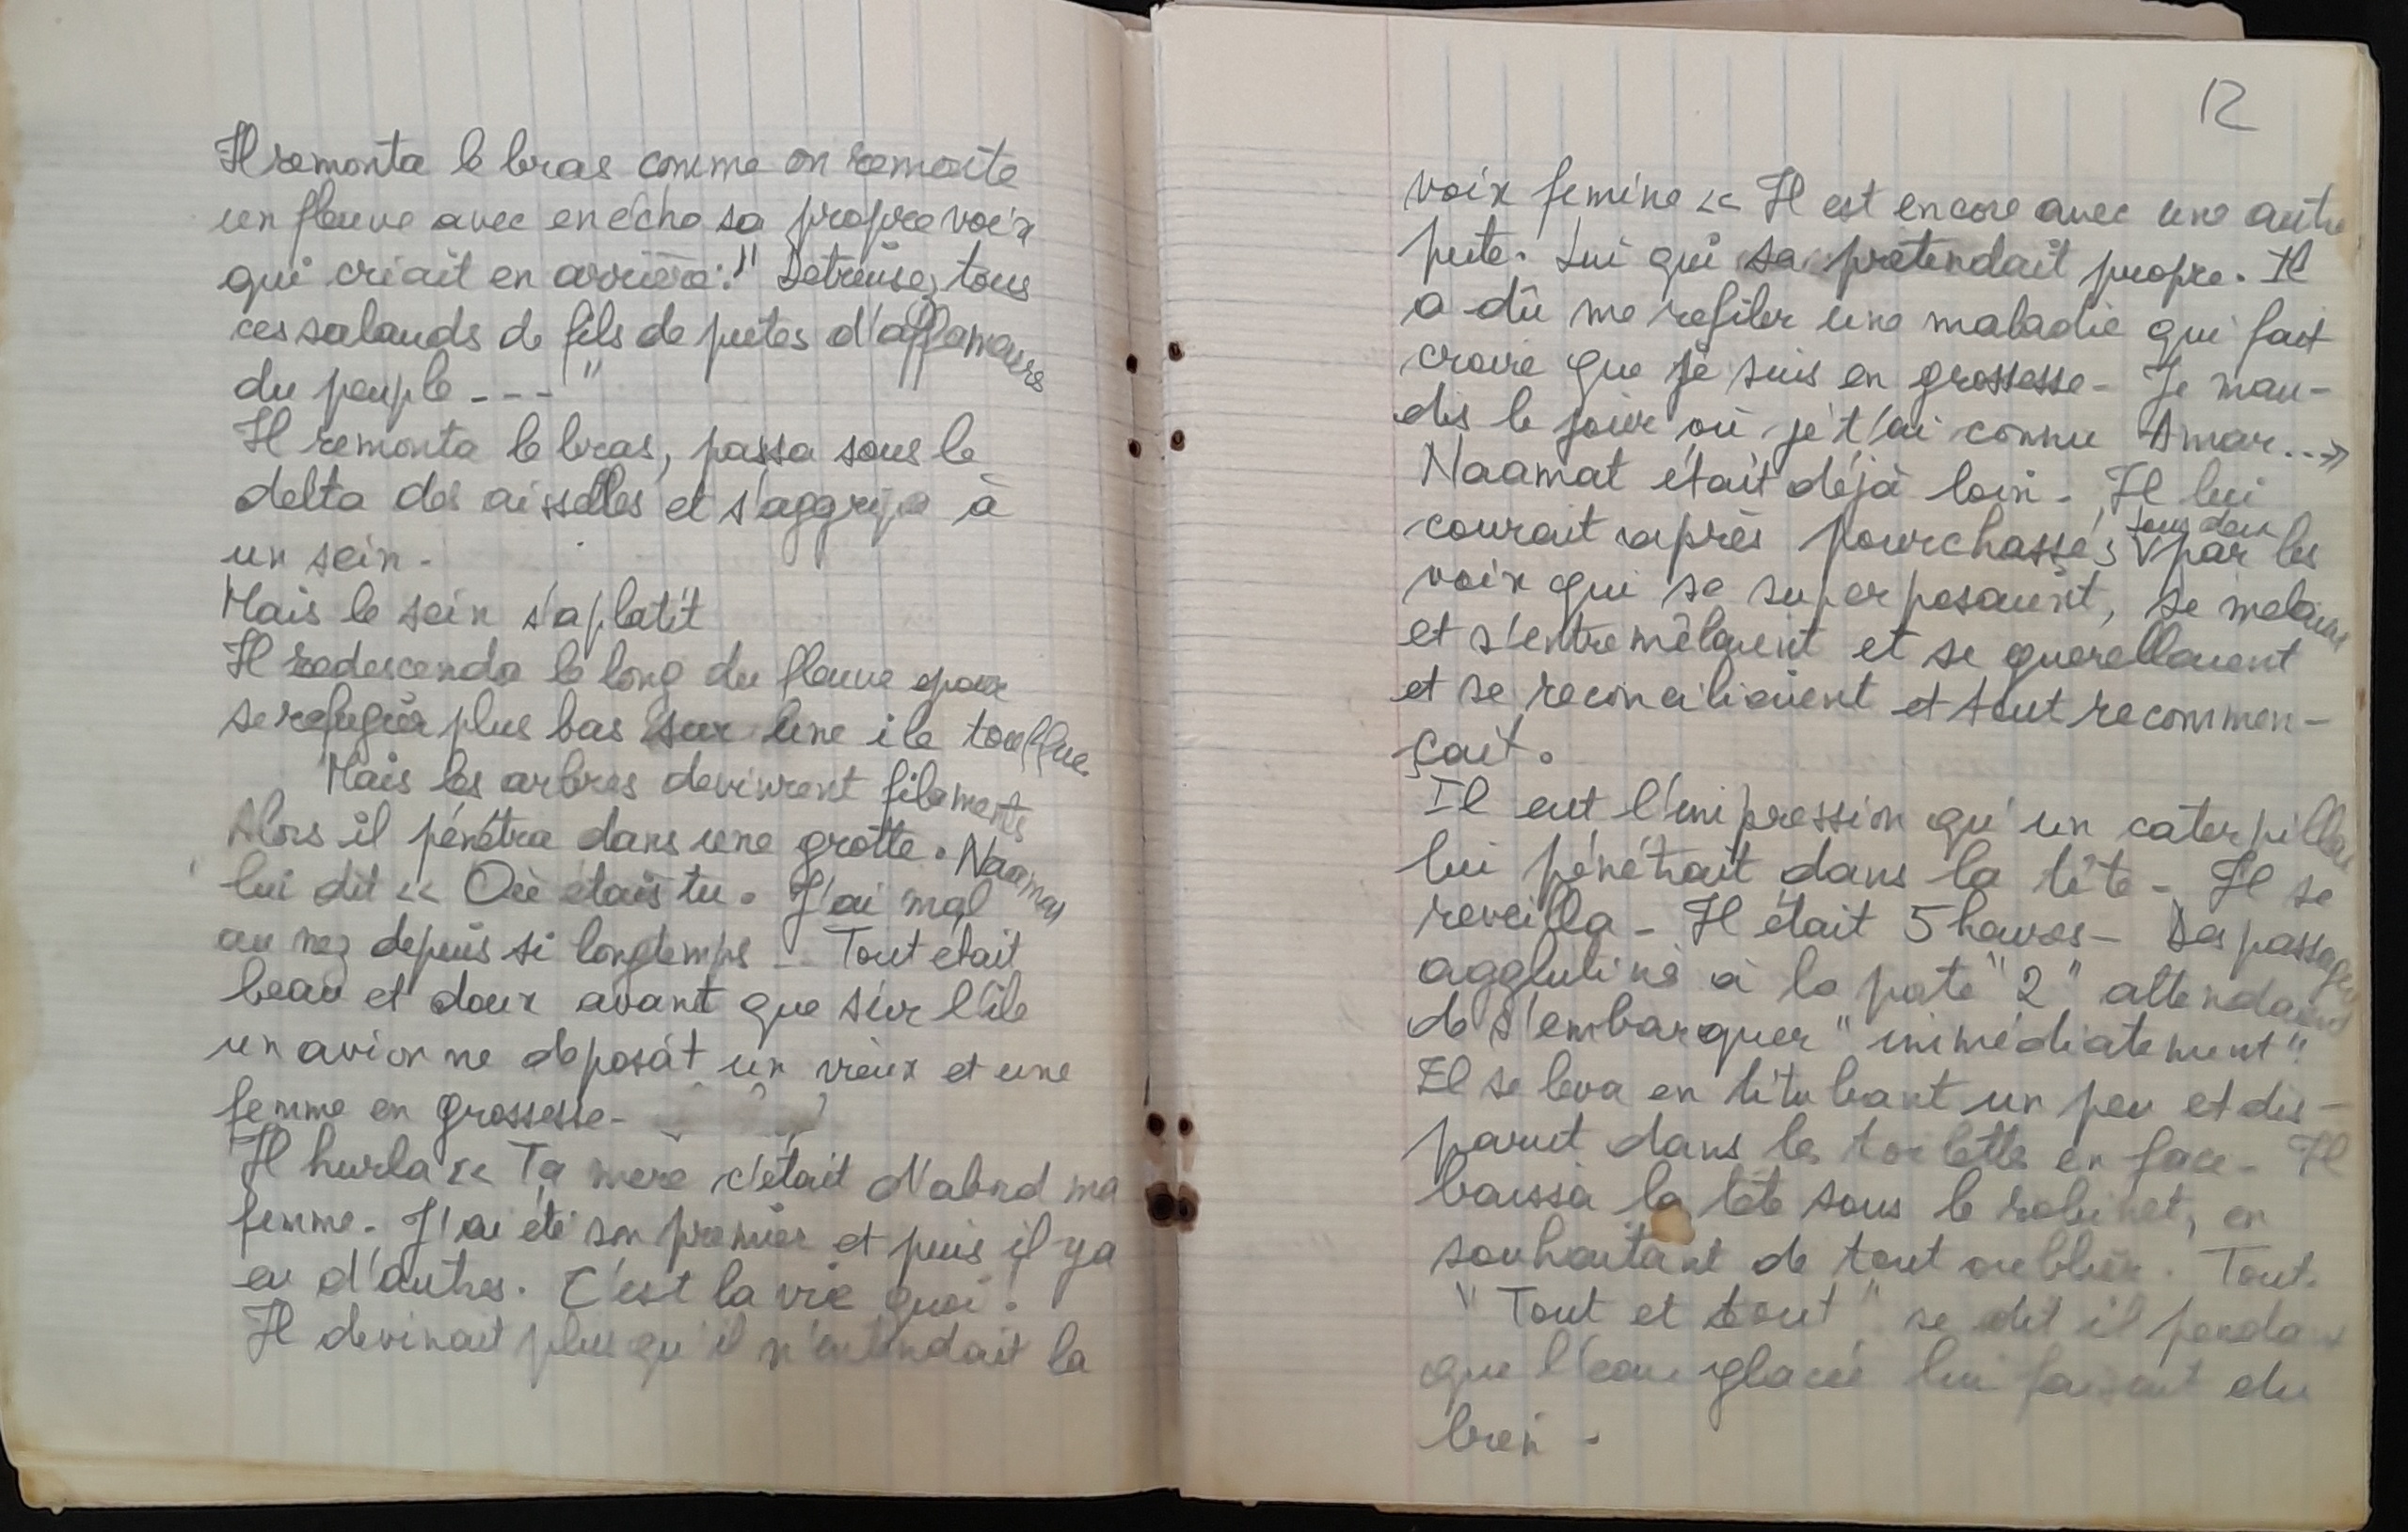 Il remonta le bras comme on remonte
un fleuve avec en écho sa propre voix
qui criait en arrière : " Detruisez tous
ces salauds de fils de putes d'affameurs
du peuple - - - "
Il remonta le bras, passa sous le
delta des aisselles et s'aggripa à
un sein -
Mais le sein s'aplatit
Il redescenda le long du fleuve pour
se refugier plus bas sur une ile touffue.
Mais les arbres devinrent filaments
Alors il pénétra dans une grotte. Naamat
lui dit << Où étais tu. J'ai mal
au nez depuis si longtemps - Tout etait
beau et doux avant que sur l'île
un avion ne deposât un vieux et une
femme en grossesse -
Il hurla << Ta mère c'était d'abord ma
femme - J'ai été son premier et puis il y a
eu d'autres. C'est la vie quoi.
Il devinait plus qu'il n'entendait la
12
voix femine << Il est encore avec une autre
pute. Lui qui se prétendait propre. Il
a dû me refiler une maladie qui fait
croire que je suis en grossesse - Je mau-
dis le jour où je t'ai connu Amar...>>
Naamat était déjà loin - Il lui
tous deux
courait après pourchassés par les
voix qui se superposaient, se melaient
et s'entremêlaient et se querellaient
et se reconciliaient et tout recommen-
çait.
Il eut l'impression qu'un caterpillar
lui pénétrait dans la tête - Il se
reveilla - Il était 5 heures - Des passagers
agglutinés à la porte "2" attendaient
de s'embarquer "immédiatement".
Il se leva en titubant un peu et dis-
parut dans les toilettes en face - Il
baissa la tête sous le robinet, en
souhaitant de tout oublier. Tout.
"Tout et tout" se dit il pendant
que l'eau glacée lui faisait du
bien -